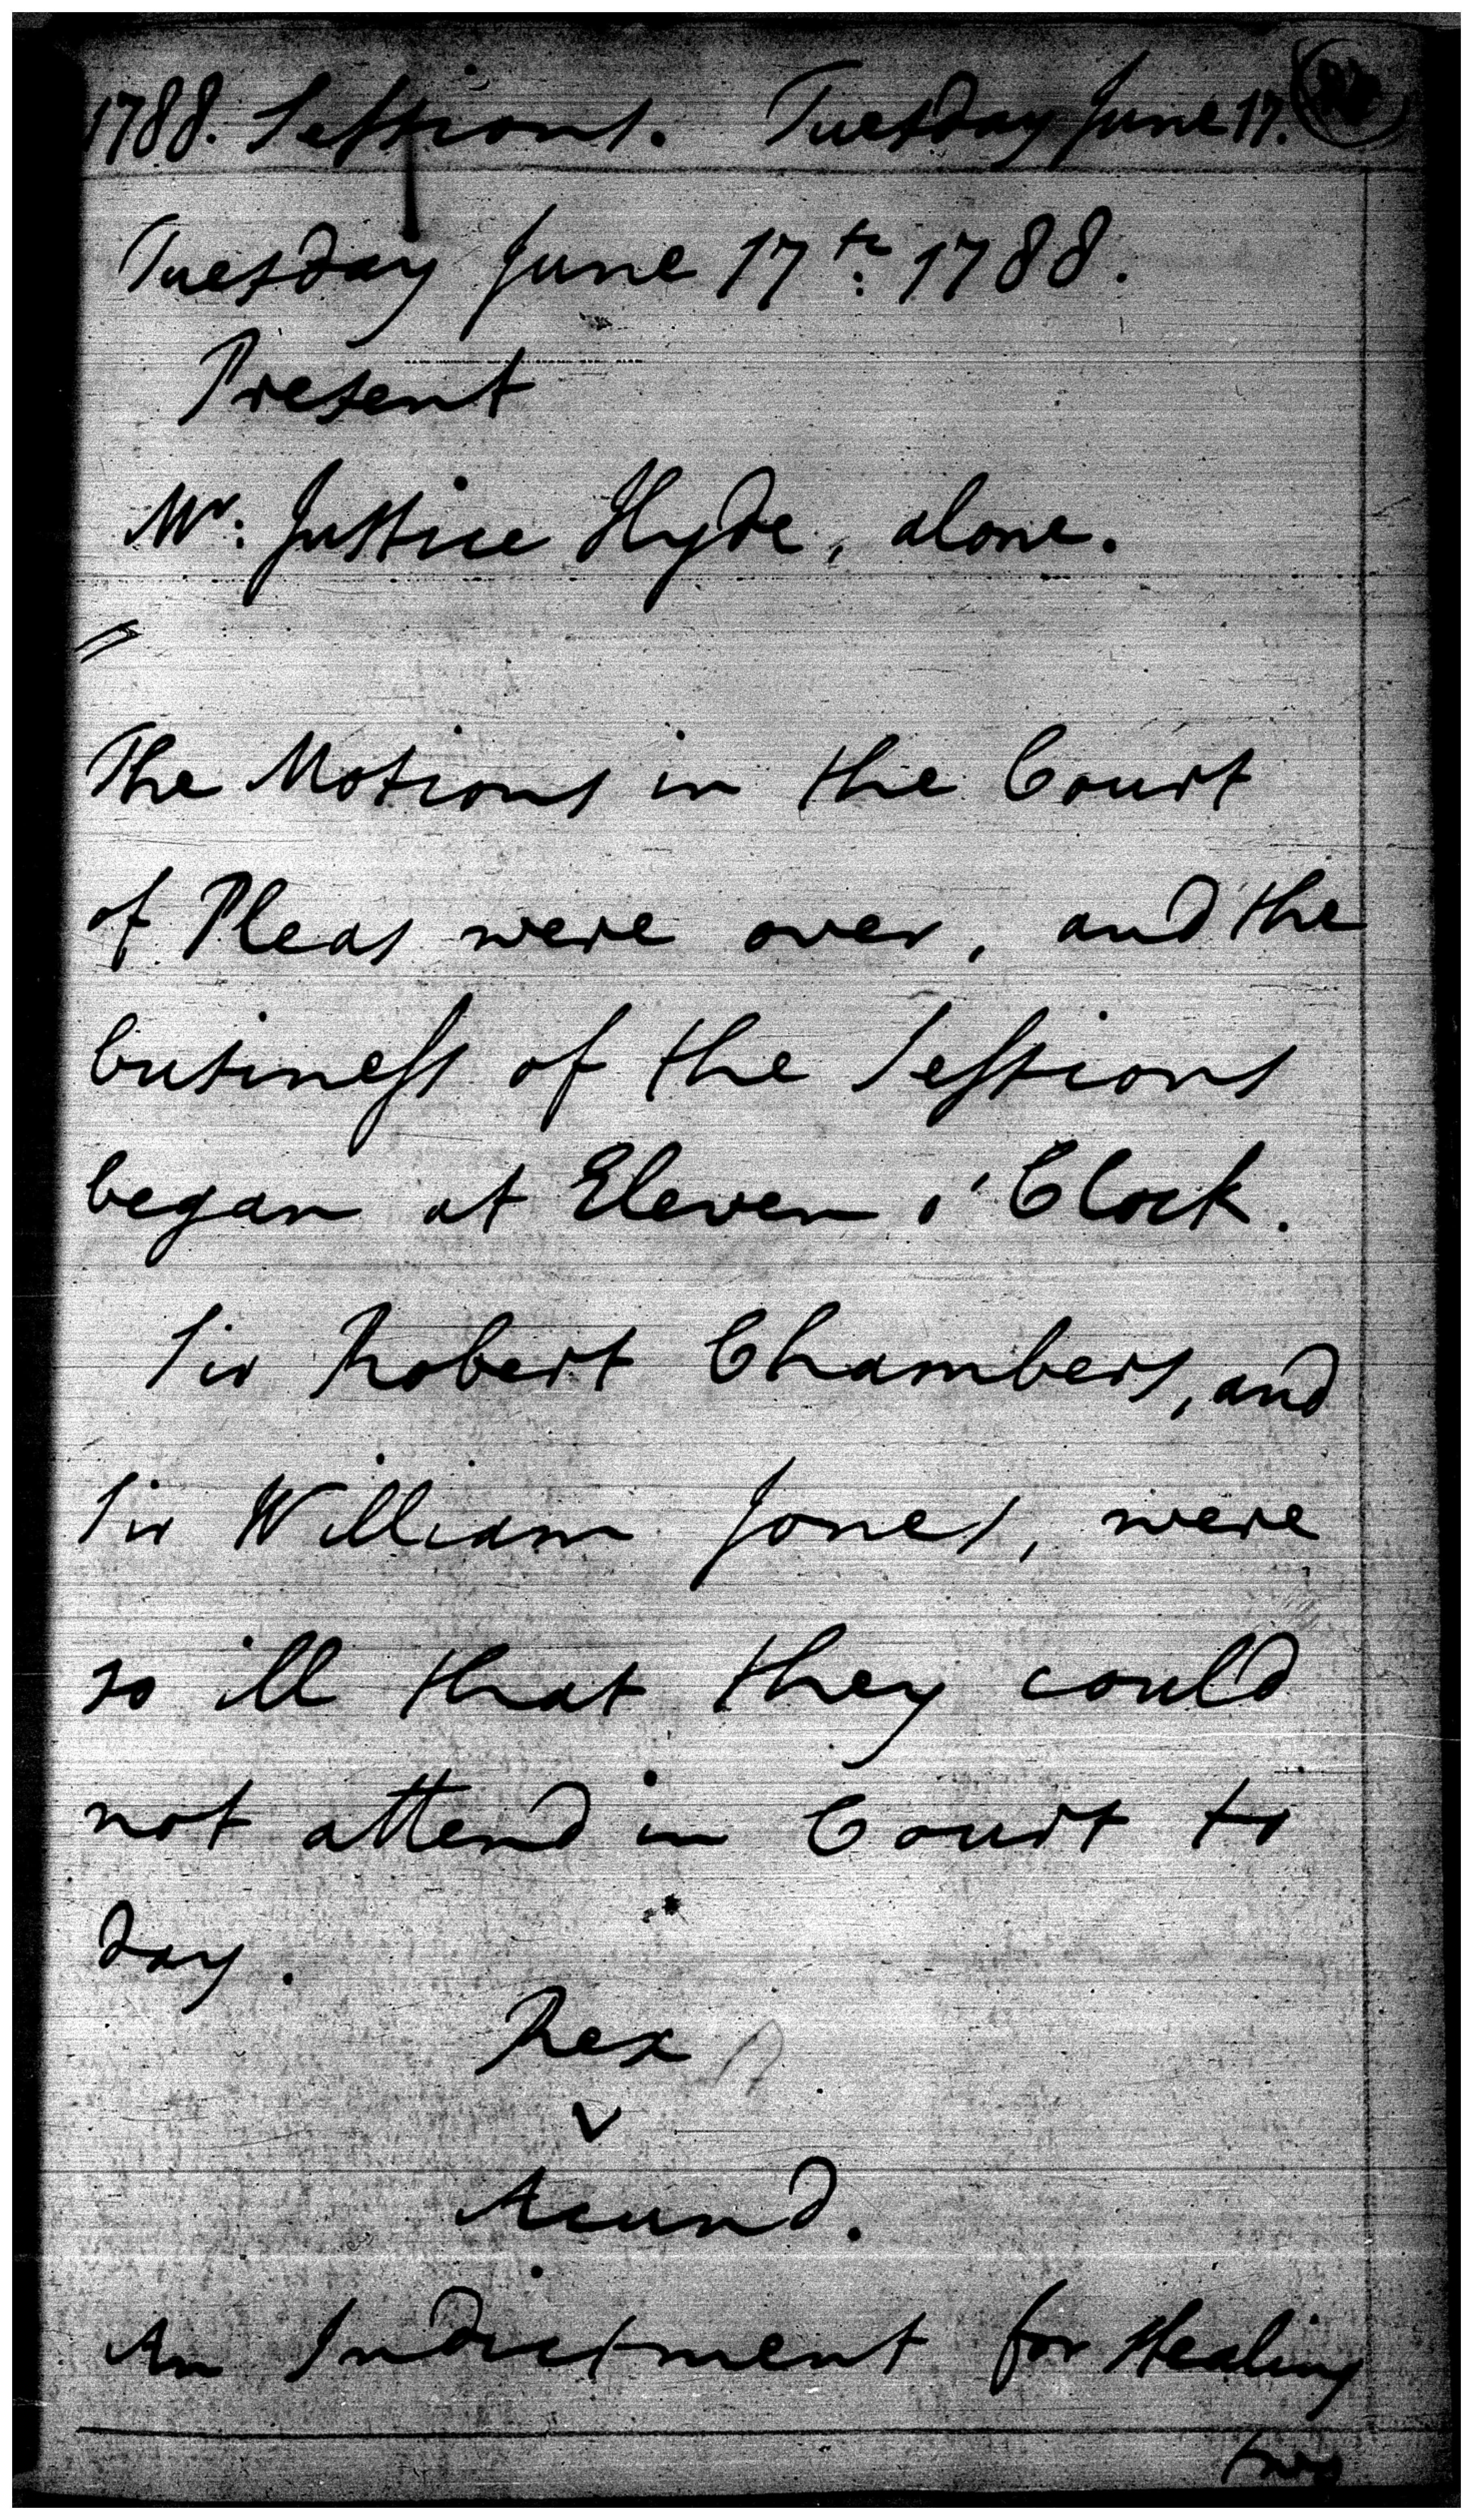 1788. Sessions. Tuesday June 17.
Tuesday June 17th. 1788.
Present
Mr. Justice Hyde, alone.
The Motions in the Court
of Pleas were over, and the
business of the Sessions
began at Eleven o'Clock.
Sir Robert Chambers, and
Sir William Jones, were
so ill that they could
not attend in Court to
day.
Rex
v
Acund.
An Indictment for stealing
two